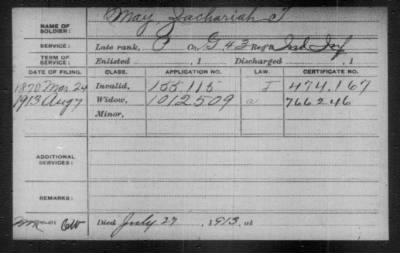 NAME OF SOLDIER: May, Zachariah T
SERVICE: Late rank, P Co. G 43 Reg't Ind Inf
TERM OF SERVICE: Enlisted , 1 Discharged , 1
DATE OF FILING. CLASS. APPLICATION NO. LAW. CERTIFICATE NO.
1870 Mar 24 Invalid, 155.115 I 474.167
1913 Aug 7 Widow, 1012509 a 766246
Minor,
ADDITIONAL SERVICES:
REMARKS:
Died July 27, 1913, at